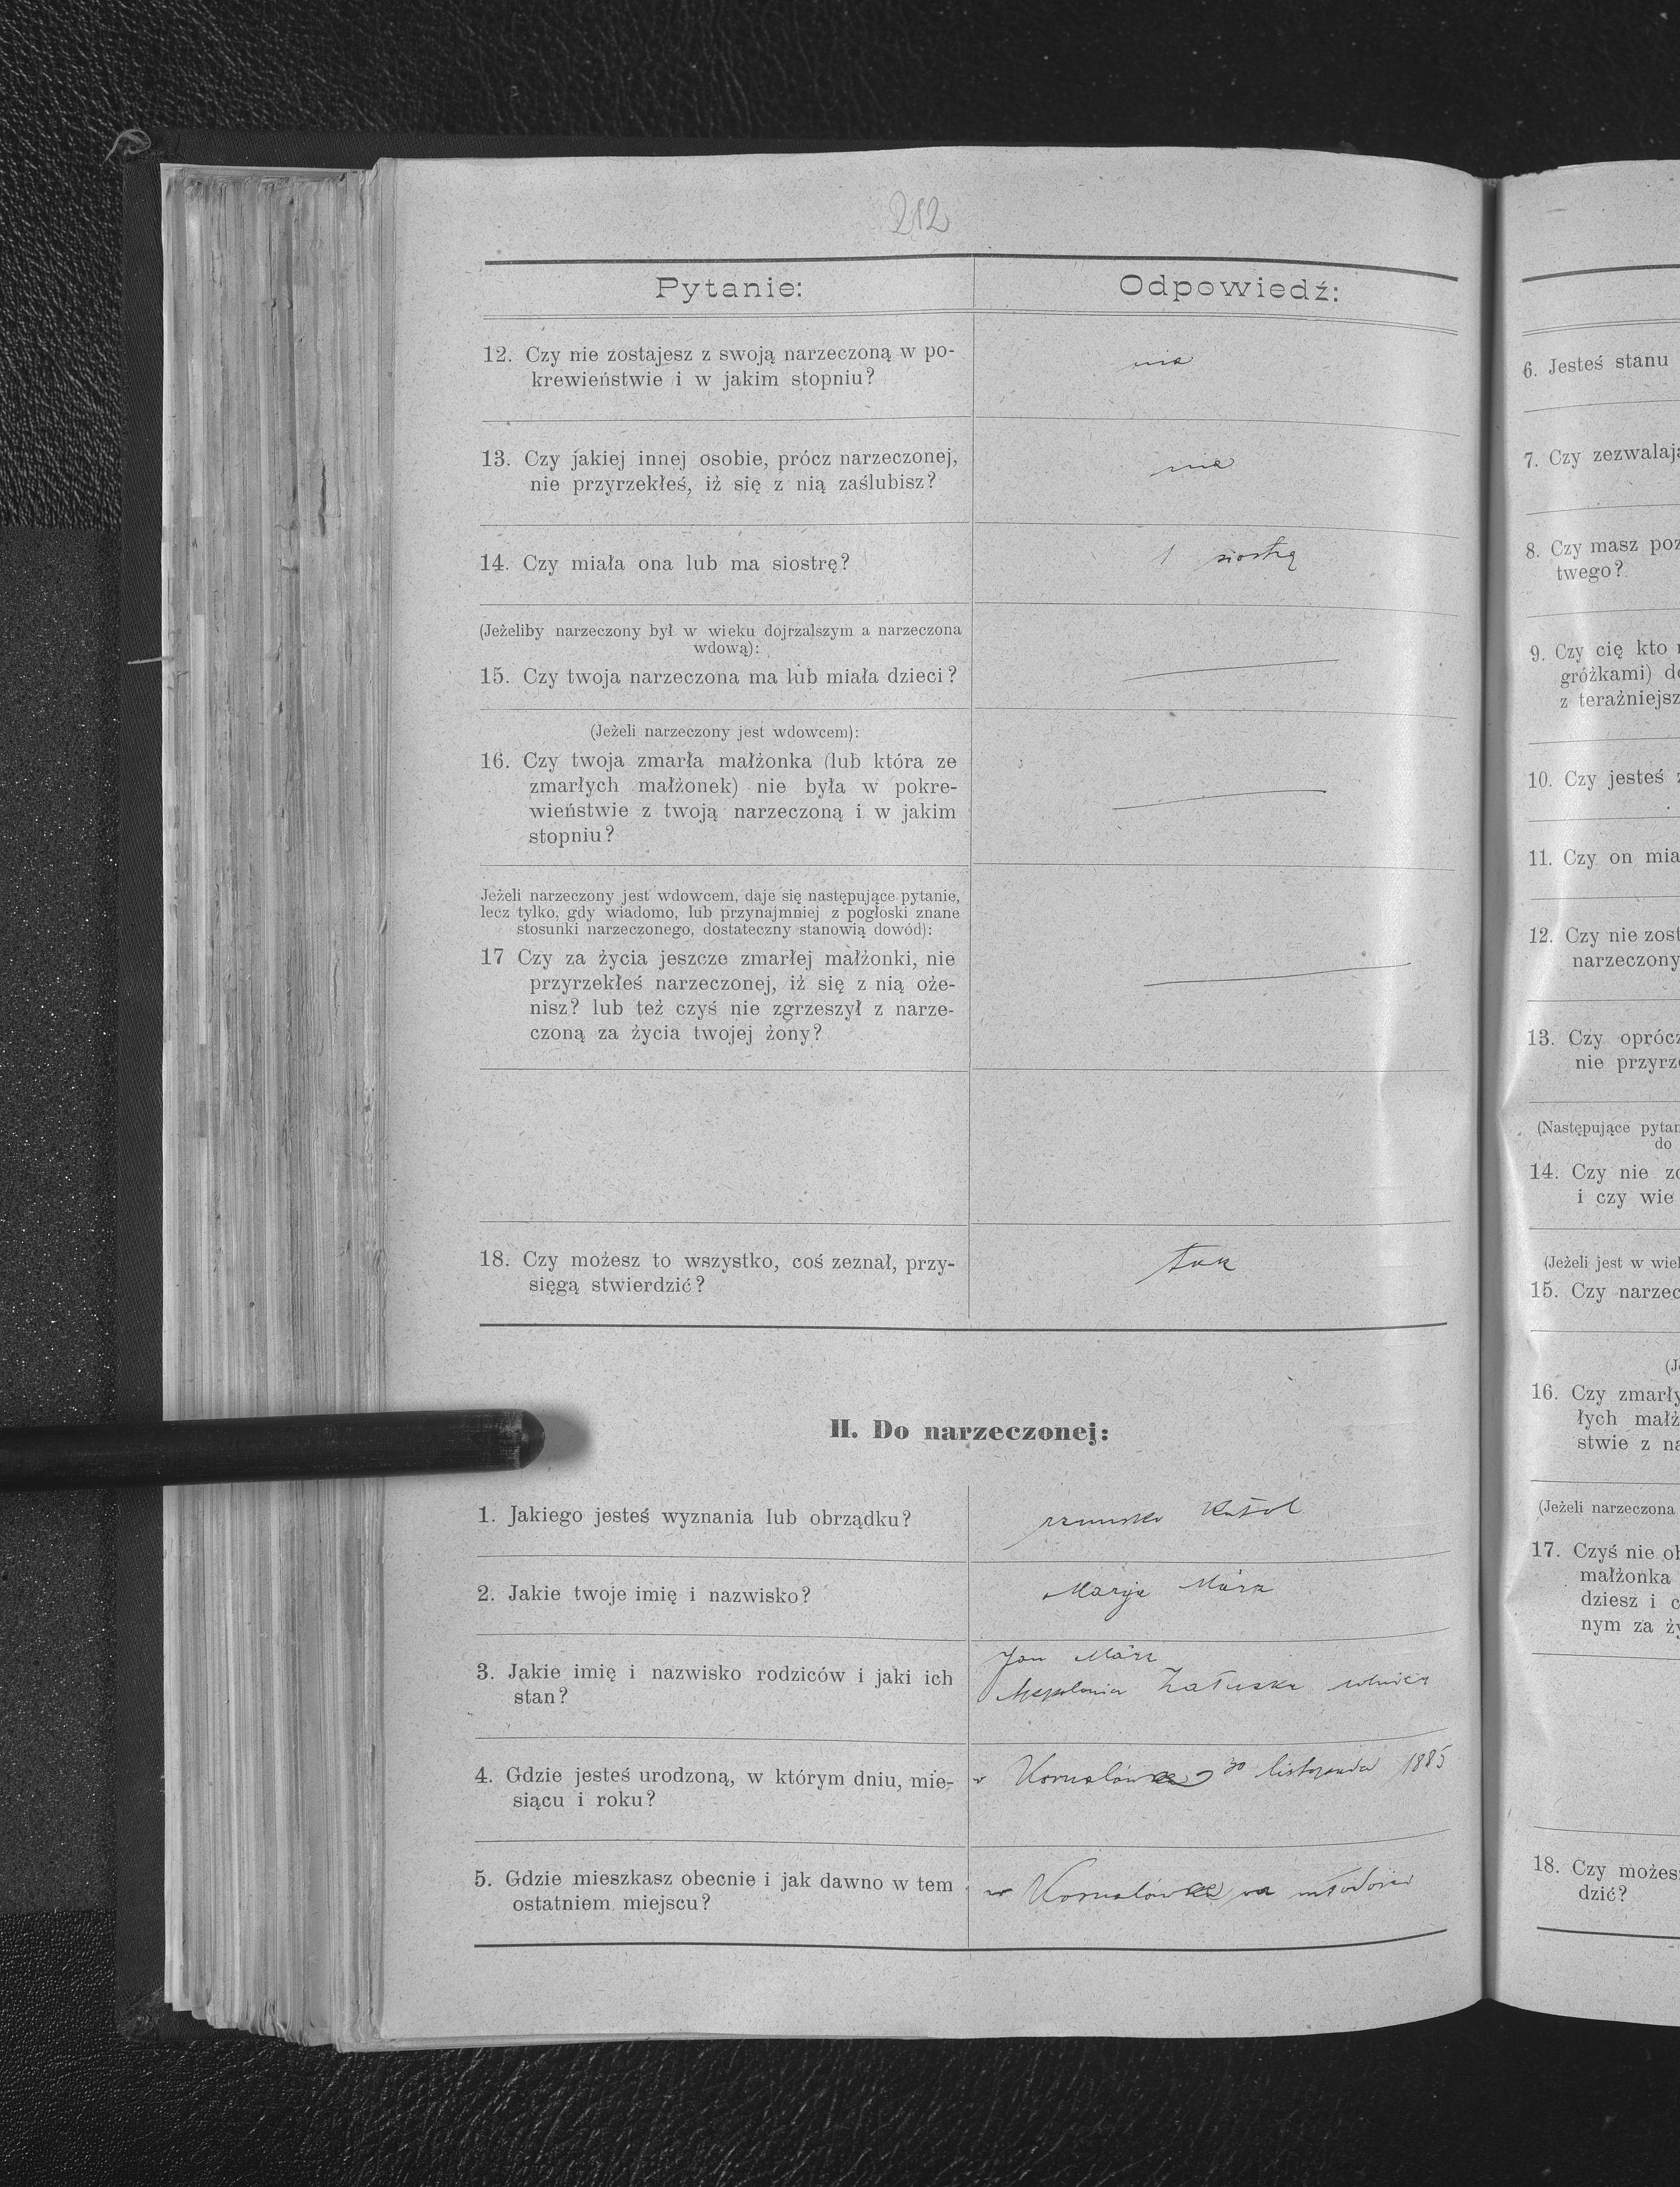 212
Pytanie:
Odpowiedź:
12. Czy nie zostajesz z swoją narzeczoną w po-
krewieństwie i w jakim stopniu?
nie
13. Czy jakiej innej osobie, prócz narzeczonej,
nie przyrzekłeś, iż się z nią zaślubisz?
nie
14. Czy miała ona lub ma siostrę?
1 siostrę
(Jeżeliby narzeczony był w wieku dojrzalszym a narzeczona
wdową):
15. Czy twoja narzeczona ma lub miała dzieci?
(Jeżeli narzeczony jest wdowcem):
16. Czy twoja zmarła małżonka (lub która ze
zmarłych małżonek) nie była w pokre-
wieństwie z twoją narzeczoną i w jakim
stopniu?
Jeżeli narzeczony jest wdowcem, daje się następujące pytanie,
lecz tylko, gdy wiadomo, lub przynajmniej z pogłoski znane
stosunki narzeczonego, dostateczny stanowią dowód):
17 Czy za życia jeszcze zmarłej małżonki, nie
przyrzekłeś narzeczonej, iż się z nią oże-
nisz? lub też czyś nie zgrzeszył z narze-
czoną za życia twojej żony?
18. Czy możesz to wszystko, coś zeznał, przy-
sięgą stwierdzić?
tak
II. Do narzeczonej:
1. Jakiego jesteś wyznania lub obrządku?
rzymsko katol
2. Jakie twoje imię i nazwisko?
Marya März
3. Jakie imię i nazwisko rodziców i jaki ich
stan?
Jan März
Apolonia Załuska rolnicy
4. Gdzie jesteś urodzoną, w którym dniu, mie-
siącu i roku?
w 30 listopada 1885
5. Gdzie mieszkasz obecnie i jak dawno w tem
ostatniem miejscu?
w od młodości
6. Jesteś stanu
7. Czy zezwalają
8. Czy masz poz
twego?
9. Czy cię kto
gróżkami) do
z teraźniejsz
10. Czy jesteś
11. Czy on mia
12. Czy nie zost
narzeczony
13. Czy oprócz
nie przyrze
(Następujące pytan
do
14. Czy nie zo
i czy wie
(Jeżeli jest w wiek
15. Czy narzec
(Je
16. Czy zmarły
łych małż
stwie z na
(Jeżeli narzeczona
17. Czyś nie ob
małżonka
dziesz i c
nym za ży
18. Czy możesz
dzić?